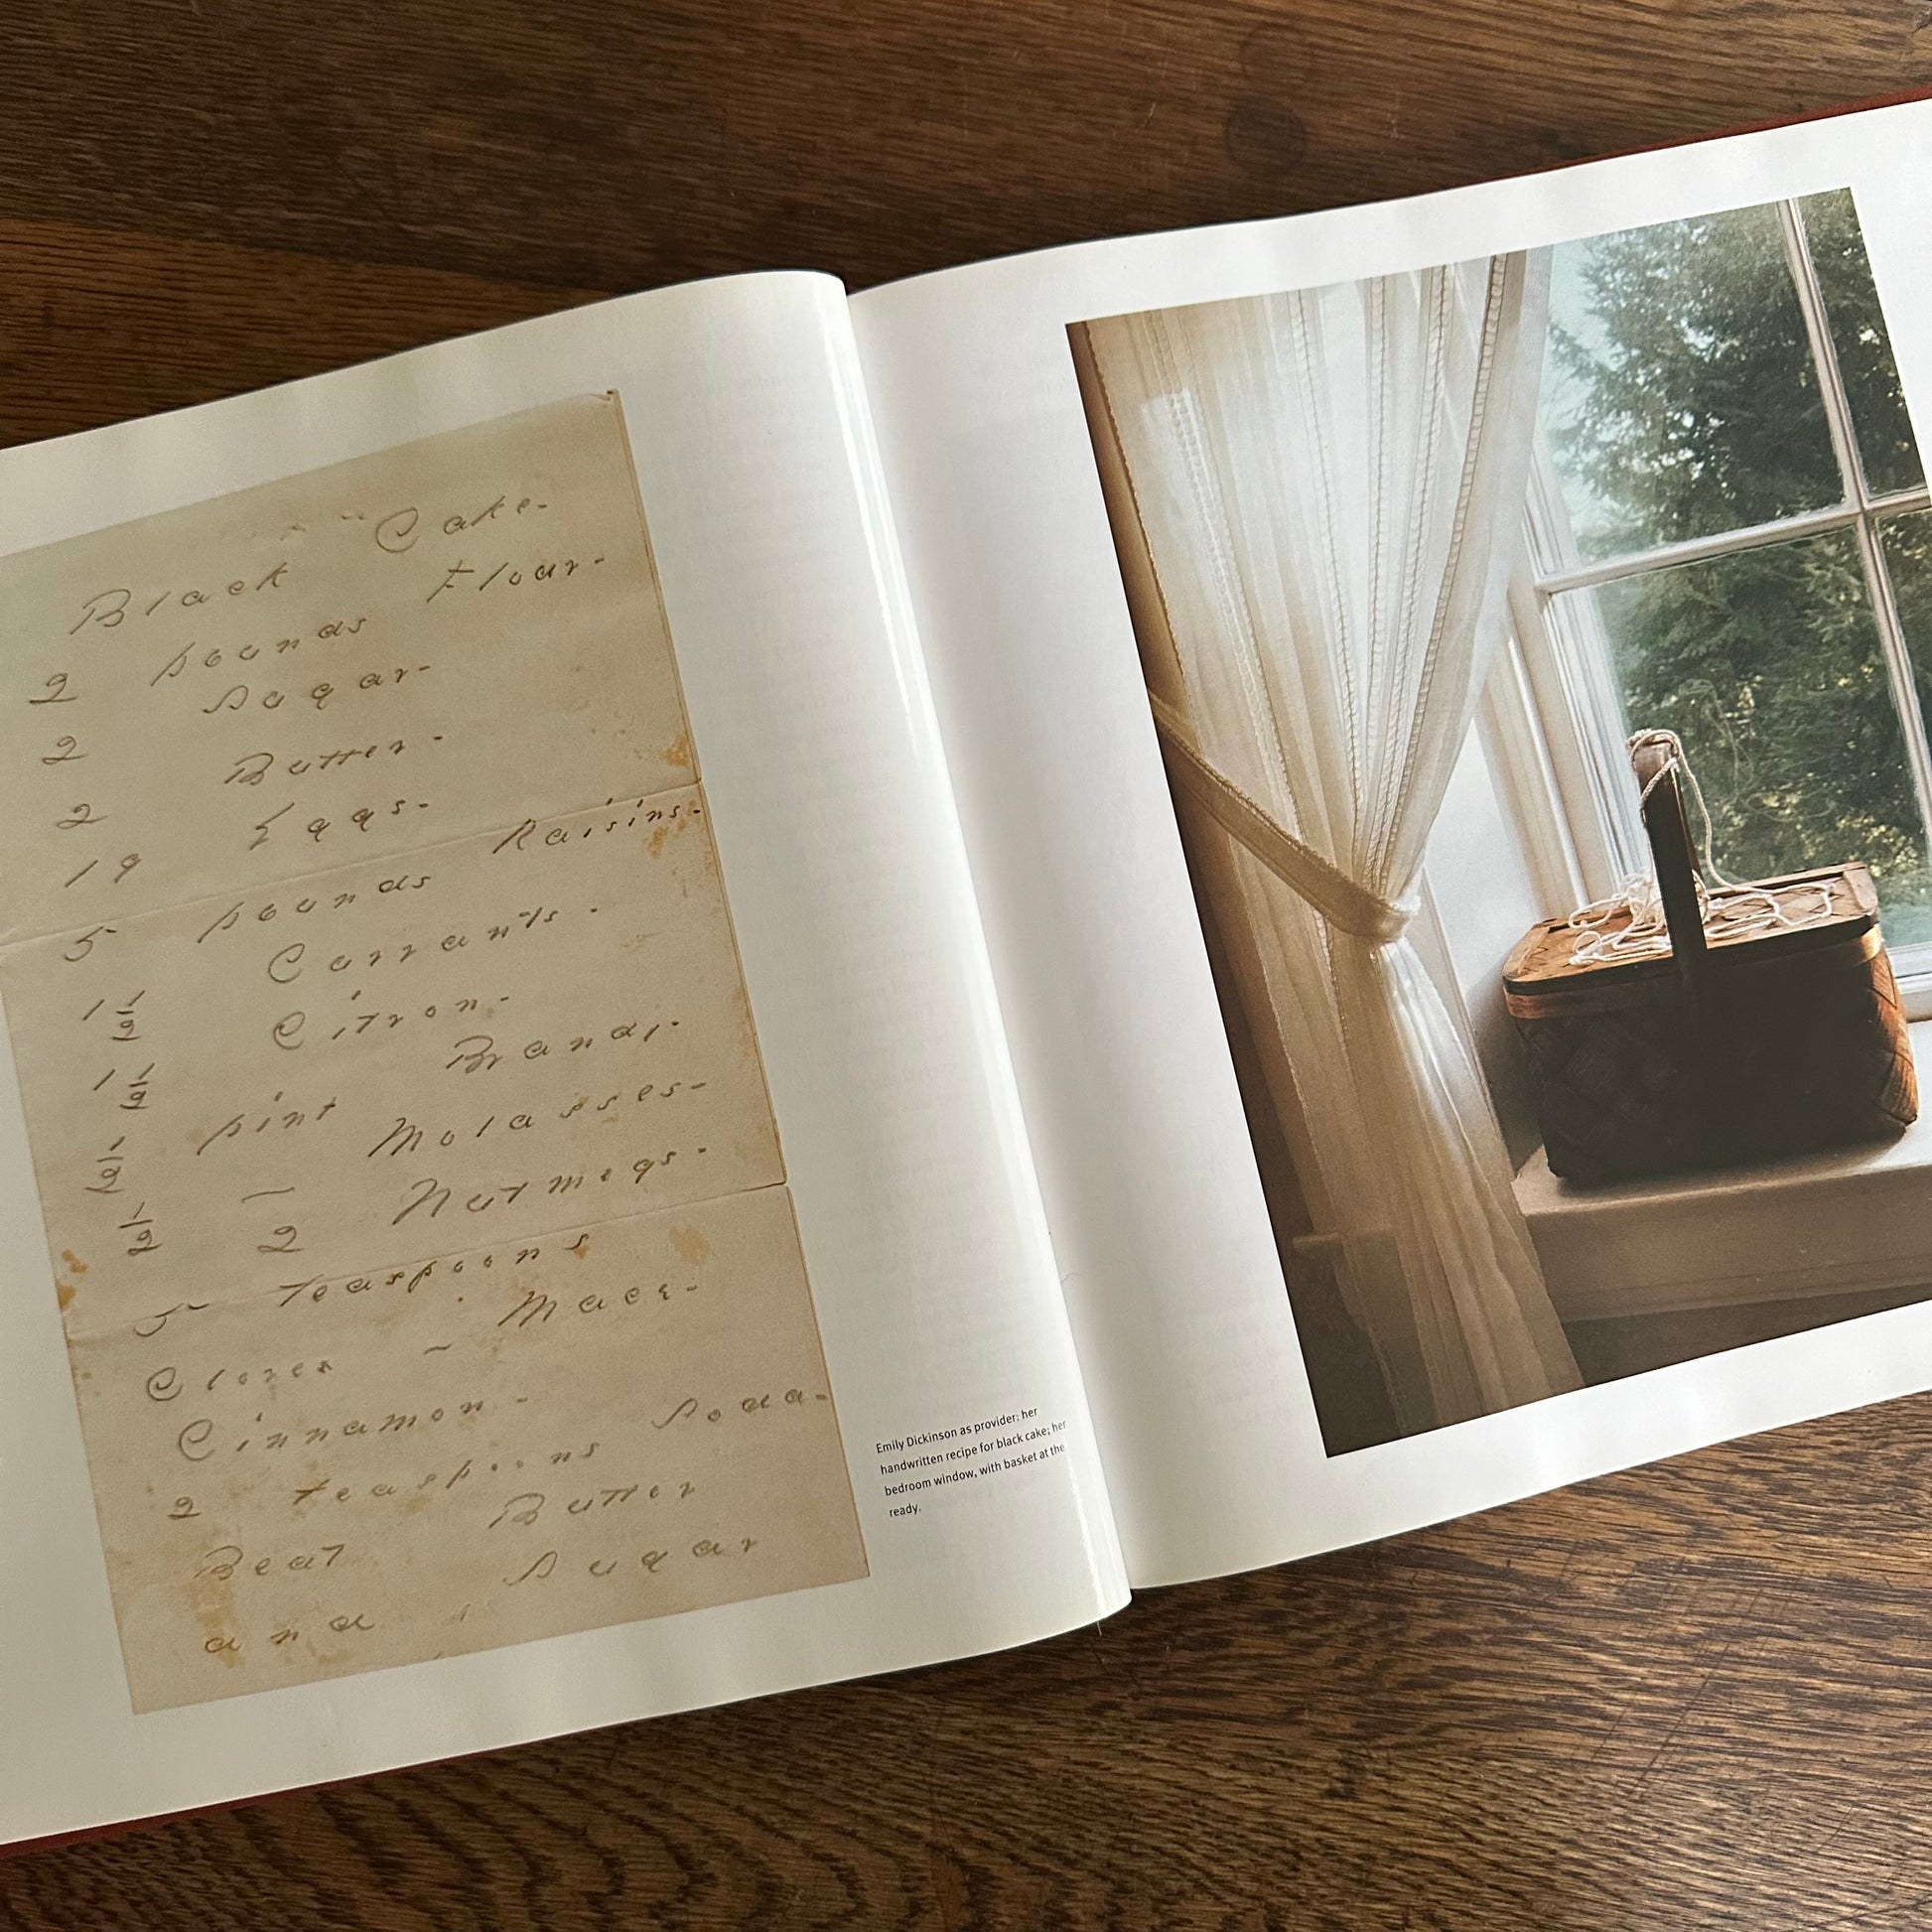 Black Cake-
2 pounds Flour-
2 Sugar-
2 Butter-
19 Eggs-
5 pounds Raisins-
1 1/2 Currants-
1 1/2 Citron-
1/2 pint Brandy-
1/2 — Molasses-
2 Nutmegs-
5 teaspoons
Cloves - Mace-
Cinnamon-
2 teaspoons Soda-
Beat Butter
and Sugar
Emily Dickinson as provider: her
handwritten recipe for black cake; her
bedroom window, with basket at the
ready.